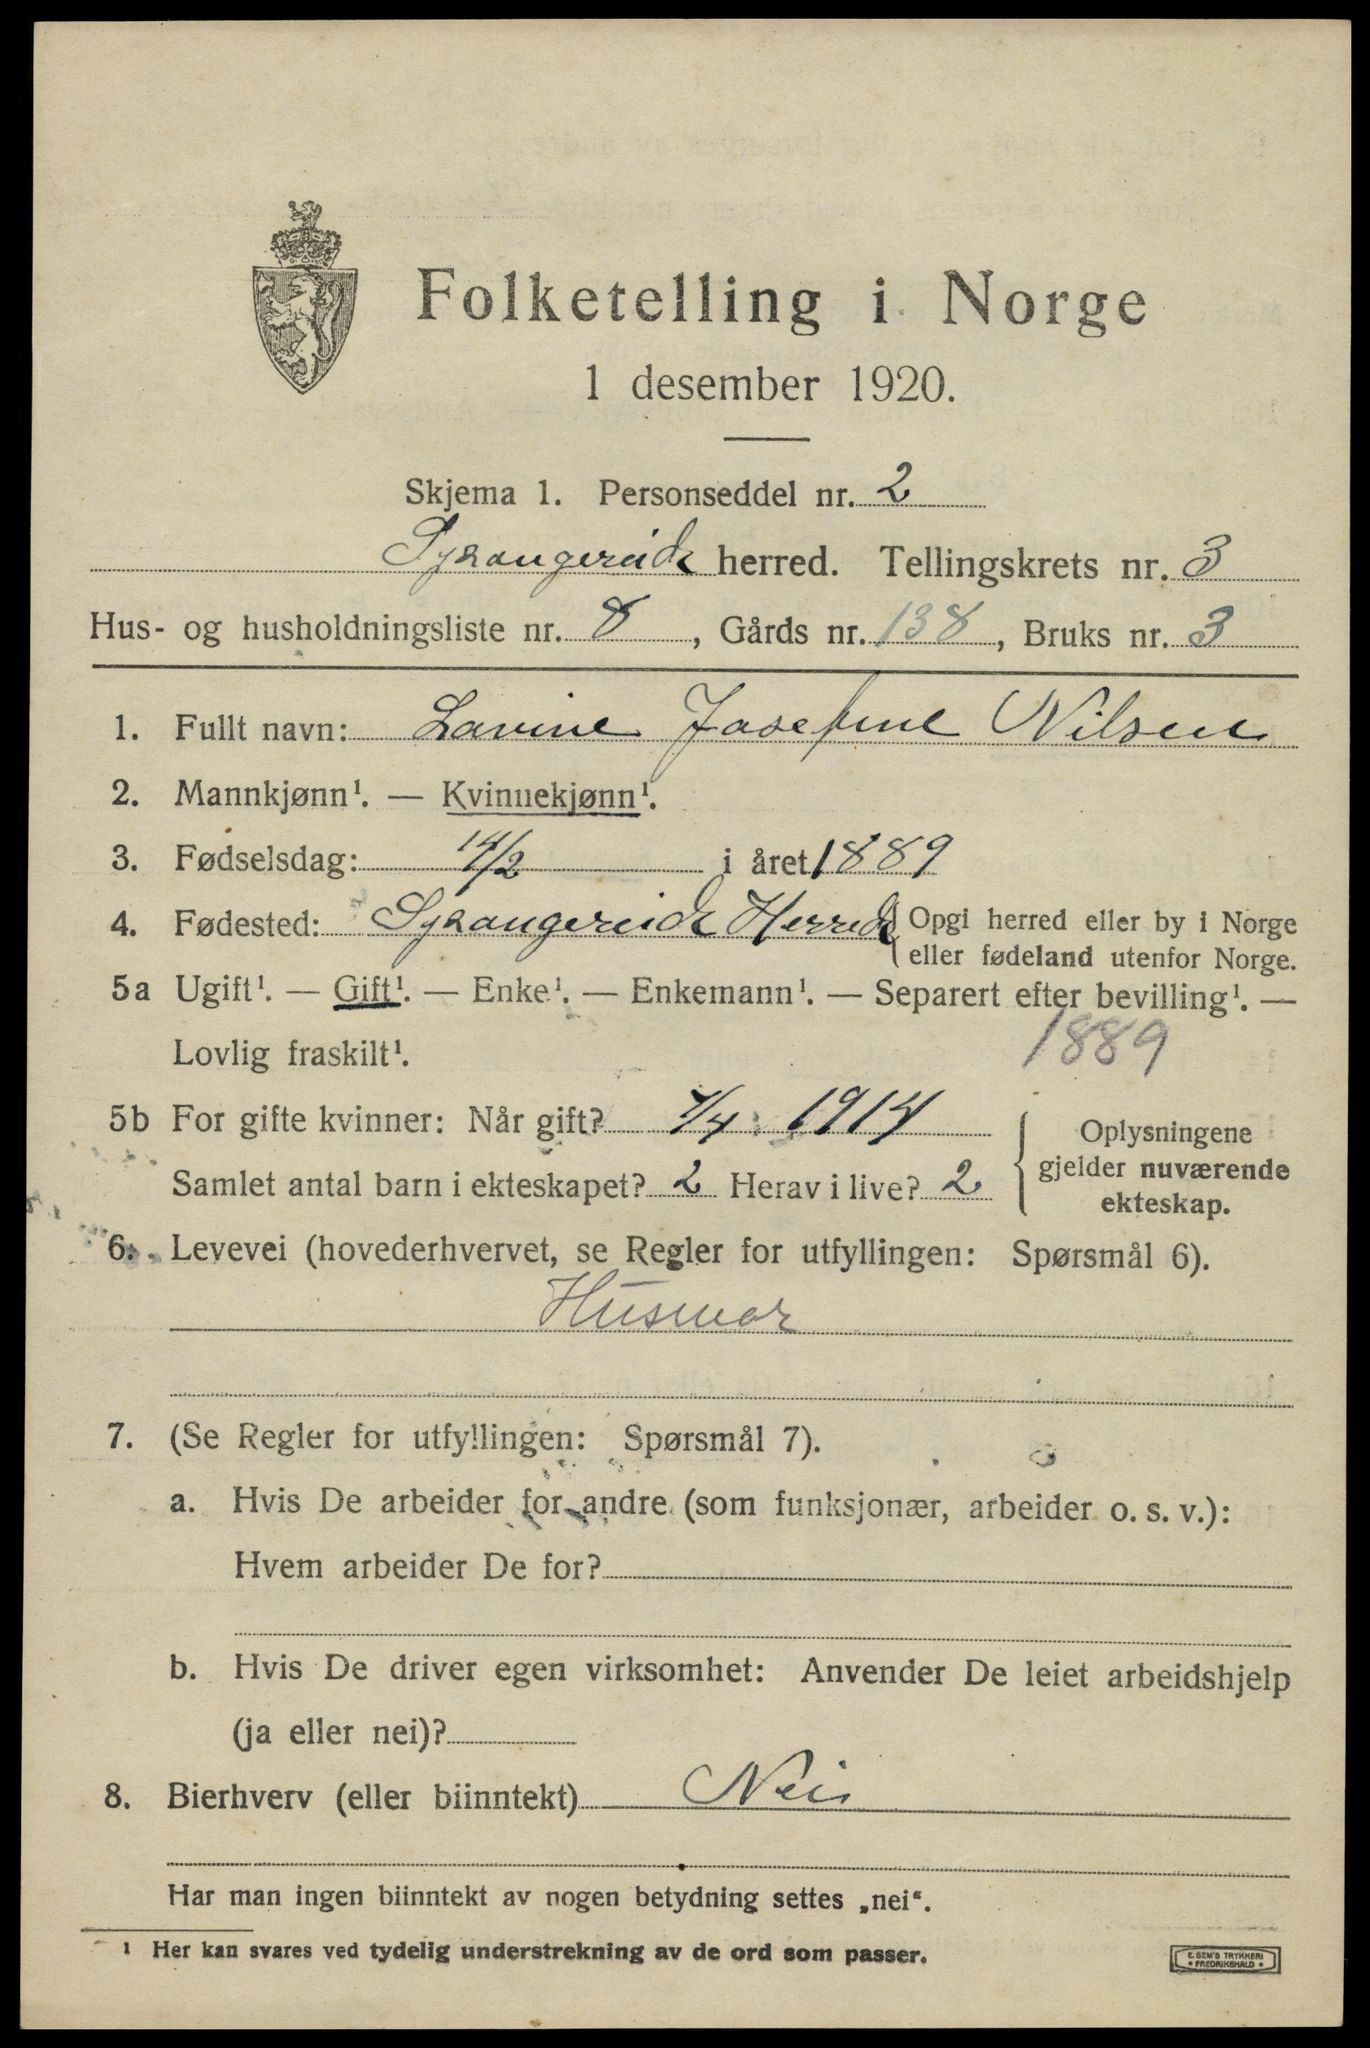 Folketelling i Norge
1 desember 1920.
Skjema 1. Personseddel nr. 2
Spangereid herred. Tellingskrets nr. 3
Hus- og husholdningsliste nr. 8, Gårds nr. 138, Bruks nr. 3
1. Fullt navn: Lavine Josefine Nilsen
2. Mannkjønn¹. — Kvinnekjønn¹.
3. Fødselsdag: 14/2 i året 1889
4. Fødested: Spangereid Herred { Opgi herred eller by i Norge
eller fødeland utenfor Norge.
5a Ugift¹. — Gift¹. — Enke¹. — Enkemann¹. — Separert efter bevilling¹. —
Lovlig fraskilt¹. 1889
5b For gifte kvinner: Når gift? 4/4 1914
Samlet antal barn i ekteskapet? 2 Herav i live? 2
{ Oplysningene
gjelder nuværende
ekteskap.
6. Levevei (hovederhvervet, se Regler for utfyllingen: Spørsmål 6).
Husmor
7. (Se Regler for utfyllingen: Spørsmål 7).
a. Hvis De arbeider for andre (som funksjonær, arbeider o. s. v.):
Hvem arbeider De for?
b. Hvis De driver egen virksomhet: Anvender De leiet arbeidshjelp
(ja eller nei)?
8. Bierhverv (eller biinntekt) Nei
Har man ingen biinntekt av nogen betydning settes „nei“.
¹ Her kan svares ved tydelig understrekning av de ord som passer.
E. SEM'S TRYKKERI
• FREDRIKSHALD •